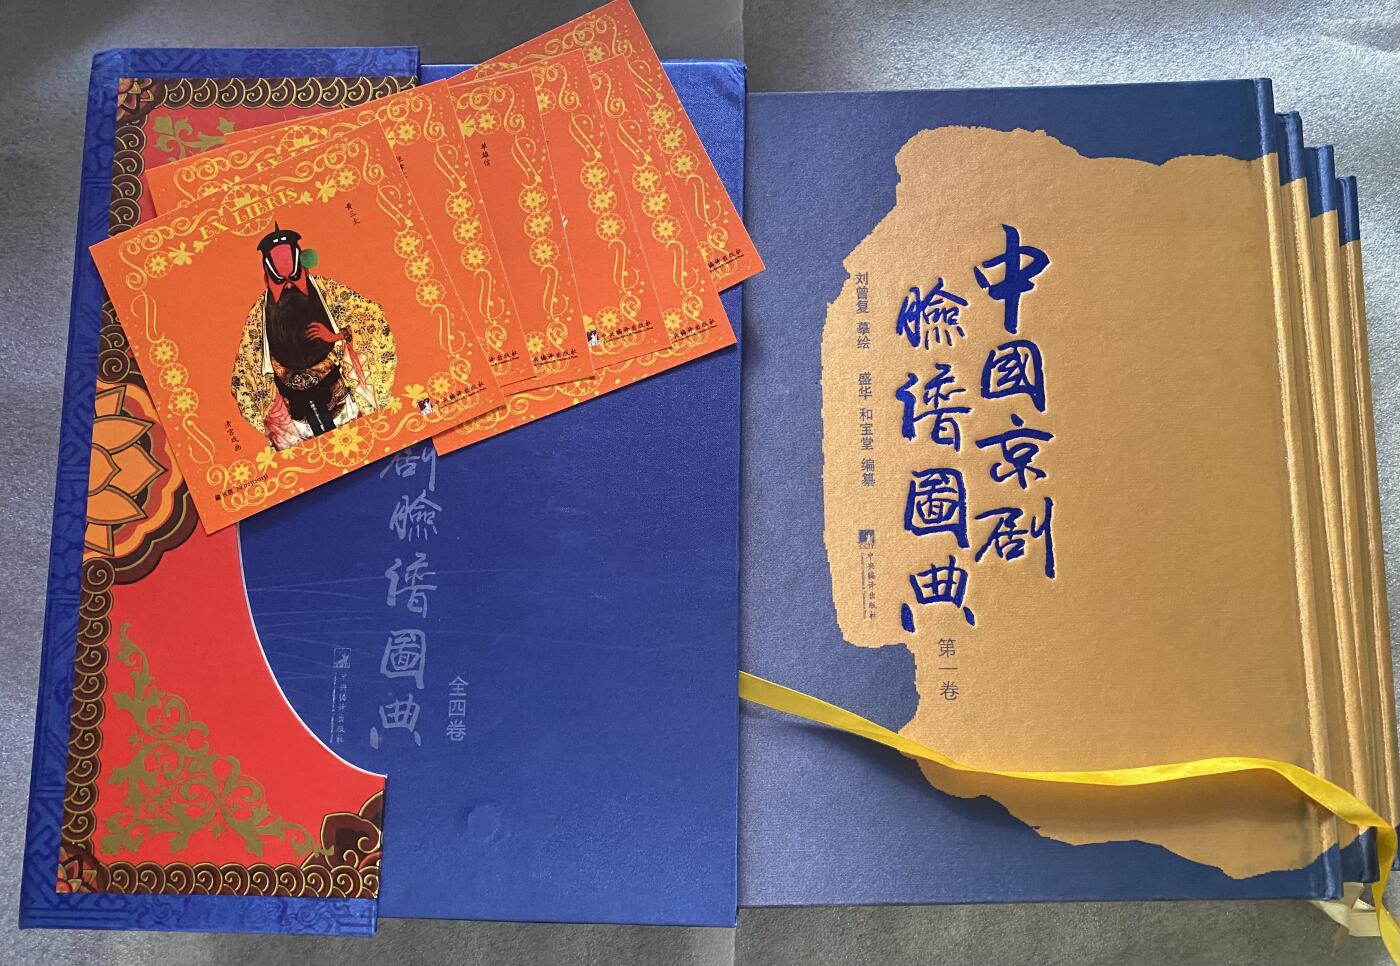 EX LIBRIS
EX
黄三太
清宫戏画
单雄信
中央编译出版社
编译出版社
剧臉谱圖典
全四卷
中央编译出版社
中國京剧
臉谱圖典
第一卷
刘曾复 摹绘 盛华 和宝堂 编纂
中央编译出版社